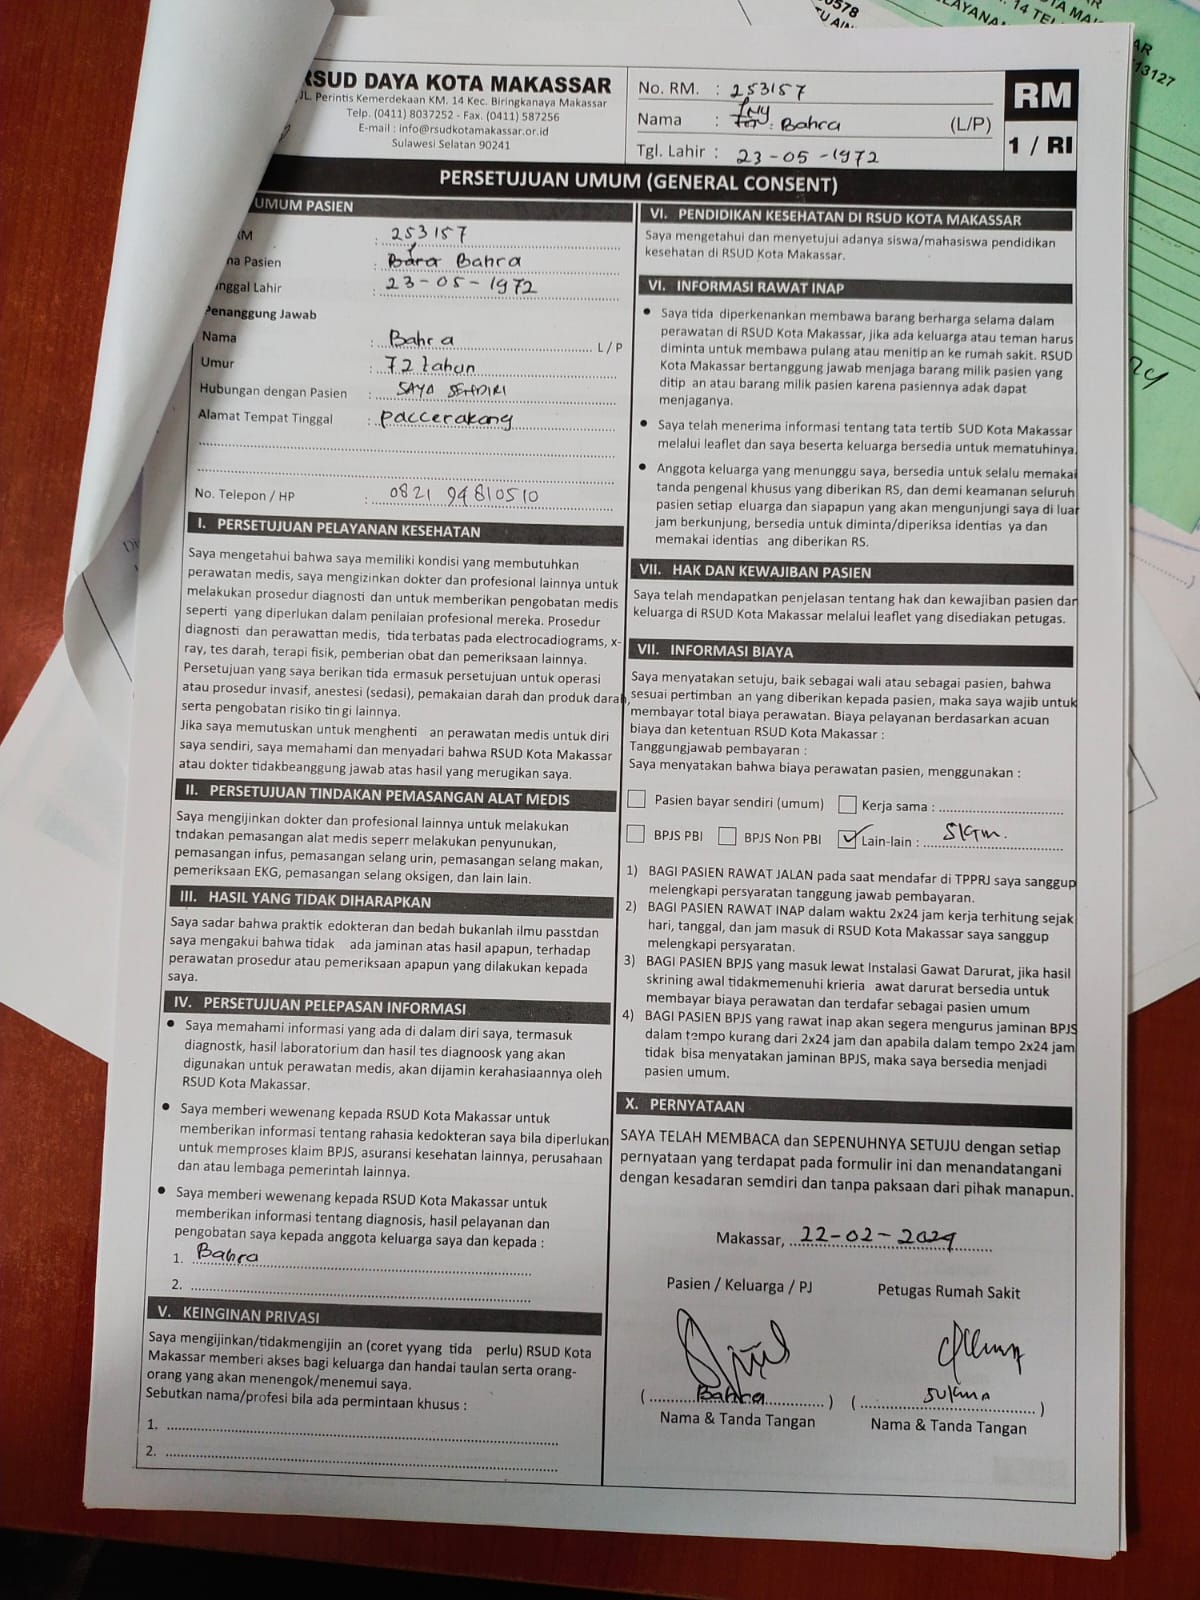 RSUD DAYA KOTA MAKASSAR
JL. Perintis Kemerdekaan KM. 14 Kec. Biringkanaya Makassar
Telp. (0411) 8037252 - Fax. (0411) 587256
E-mail : info@rsudkotamakassar.or.id
Sulawesi Selatan 90241
No. RM. : 253157
Nama : Ny Bahra (L/P)
Tgl. Lahir : 23-05-1972
RM
1 / RI
PERSETUJUAN UMUM (GENERAL CONSENT)
UMUM PASIEN
RM : 253157
na Pasien : Bahra
nggal Lahir : 23-05-1972
Penanggung Jawab
Nama : Bahra L / P
Umur : 72 tahun
Hubungan dengan Pasien : SAYA SENDIRI
Alamat Tempat Tinggal : paccerakang
No. Telepon / HP : 0821 94810510
I. PERSETUJUAN PELAYANAN KESEHATAN
Saya mengetahui bahwa saya memiliki kondisi yang membutuhkan
perawatan medis, saya mengizinkan dokter dan profesional lainnya untuk
melakukan prosedur diagnosti dan untuk memberikan pengobatan medis
seperti yang diperlukan dalam penilaian profesional mereka. Prosedur
diagnosti dan perawattan medis, tida terbatas pada electrocadiograms, x-
ray, tes darah, terapi fisik, pemberian obat dan pemeriksaan lainnya.
Persetujuan yang saya berikan tida ermasuk persetujuan untuk operasi
atau prosedur invasif, anestesi (sedasi), pemakaian darah dan produk darah,
serta pengobatan risiko tin gi lainnya.
Jika saya memutuskan untuk menghenti an perawatan medis untuk diri
saya sendiri, saya memahami dan menyadari bahwa RSUD Kota Makassar
atau dokter tidakbeanggung jawab atas hasil yang merugikan saya.
II. PERSETUJUAN TINDAKAN PEMASANGAN ALAT MEDIS
Saya mengijinkan dokter dan profesional lainnya untuk melakukan
tndakan pemasangan alat medis seperr melakukan penyunukan,
pemasangan infus, pemasangan selang urin, pemasangan selang makan,
pemeriksaan EKG, pemasangan selang oksigen, dan lain lain.
III. HASIL YANG TIDAK DIHARAPKAN
Saya sadar bahwa praktik edokteran dan bedah bukanlah ilmu passtdan
saya mengakui bahwa tidak ada jaminan atas hasil apapun, terhadap
perawatan prosedur atau pemeriksaan apapun yang dilakukan kepada
saya.
IV. PERSETUJUAN PELEPASAN INFORMASI
• Saya memahami informasi yang ada di dalam diri saya, termasuk
diagnostk, hasil laboratorium dan hasil tes diagnoosk yang akan
digunakan untuk perawatan medis, akan dijamin kerahasiaannya oleh
RSUD Kota Makassar.
• Saya memberi wewenang kepada RSUD Kota Makassar untuk
memberikan informasi tentang rahasia kedokteran saya bila diperlukan
untuk memproses klaim BPJS, asuransi kesehatan lainnya, perusahaan
dan atau lembaga pemerintah lainnya.
• Saya memberi wewenang kepada RSUD Kota Makassar untuk
memberikan informasi tentang diagnosis, hasil pelayanan dan
pengobatan saya kepada anggota keluarga saya dan kepada :
1. Bahra
2.
V. KEINGINAN PRIVASI
Saya mengijinkan/tidakmengijin an (coret yyang tida perlu) RSUD Kota
Makassar memberi akses bagi keluarga dan handai taulan serta orang-
orang yang akan menengok/menemui saya.
Sebutkan nama/profesi bila ada permintaan khusus :
1.
2.
VI. PENDIDIKAN KESEHATAN DI RSUD KOTA MAKASSAR
Saya mengetahui dan menyetujui adanya siswa/mahasiswa pendidikan
kesehatan di RSUD Kota Makassar.
VI. INFORMASI RAWAT INAP
• Saya tida diperkenankan membawa barang berharga selama dalam
perawatan di RSUD Kota Makassar, jika ada keluarga atau teman harus
diminta untuk membawa pulang atau menitip an ke rumah sakit. RSUD
Kota Makassar bertanggung jawab menjaga barang milik pasien yang
ditip an atau barang milik pasien karena pasiennya adak dapat
menjaganya.
• Saya telah menerima informasi tentang tata tertib SUD Kota Makassar
melalui leaflet dan saya beserta keluarga bersedia untuk mematuhinya.
• Anggota keluarga yang menunggu saya, bersedia untuk selalu memakai
tanda pengenal khusus yang diberikan RS, dan demi keamanan seluruh
pasien setiap eluarga dan siapapun yang akan mengunjungi saya di luar
jam berkunjung, bersedia untuk diminta/diperiksa identias ya dan
memakai identias ang diberikan RS.
VII. HAK DAN KEWAJIBAN PASIEN
Saya telah mendapatkan penjelasan tentang hak dan kewajiban pasien dan
keluarga di RSUD Kota Makassar melalui leaflet yang disediakan petugas.
VII. INFORMASI BIAYA
Saya menyatakan setuju, baik sebagai wali atau sebagai pasien, bahwa
sesuai pertimban an yang diberikan kepada pasien, maka saya wajib untuk
membayar total biaya perawatan. Biaya pelayanan berdasarkan acuan
biaya dan ketentuan RSUD Kota Makassar :
Tanggungjawab pembayaran :
Saya menyatakan bahwa biaya perawatan pasien, menggunakan :
Pasien bayar sendiri (umum) Kerja sama :
BPJS PBI BPJS Non PBI Lain-lain : SKTM.
1) BAGI PASIEN RAWAT JALAN pada saat mendafar di TPPRJ saya sanggup
melengkapi persyaratan tanggung jawab pembayaran.
2) BAGI PASIEN RAWAT INAP dalam waktu 2x24 jam kerja terhitung sejak
hari, tanggal, dan jam masuk di RSUD Kota Makassar saya sanggup
melengkapi persyaratan.
3) BAGI PASIEN BPJS yang masuk lewat Instalasi Gawat Darurat, jika hasil
skrining awal tidakmemenuhi krieria awat darurat bersedia untuk
membayar biaya perawatan dan terdafar sebagai pasien umum
4) BAGI PASIEN BPJS yang rawat inap akan segera mengurus jaminan BPJS
dalam tempo kurang dari 2x24 jam dan apabila dalam tempo 2x24 jam
tidak bisa menyatakan jaminan BPJS, maka saya bersedia menjadi
pasien umum.
X. PERNYATAAN
SAYA TELAH MEMBACA dan SEPENUHNYA SETUJU dengan setiap
pernyataan yang terdapat pada formulir ini dan menandatangani
dengan kesadaran semdiri dan tanpa paksaan dari pihak manapun.
Makassar, 22-02-2024
Pasien / Keluarga / PJ Petugas Rumah Sakit
( Bahra ) ( sukma )
Nama & Tanda Tangan Nama & Tanda Tangan